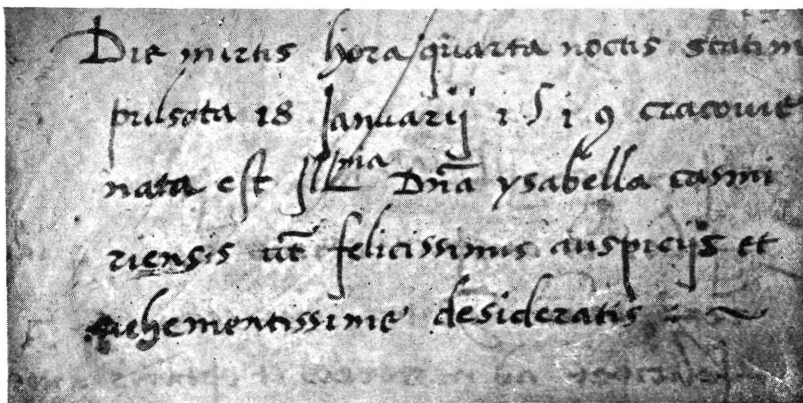 Die mirtis hora quarta noctis statim
pulsata 18 Januarij 1519 cracovie
nata est Illma Dña ysabella casmi
riensis ut felicissimis auspicijs et
vehementissime desideratis :~